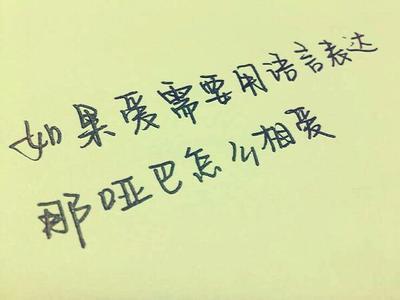 如果爱需要用语言表达
那哑巴怎么相爱